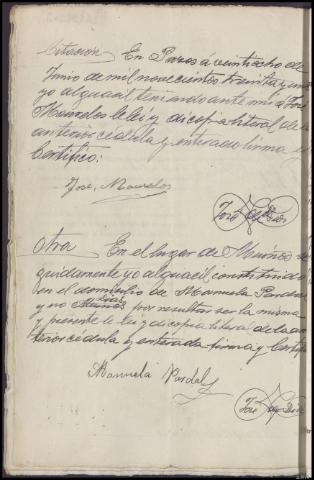 Citación En Pazos á veintiocho de
Junio de mil novecientos treinta y uno
yo alguacil teniendo ante mi a José
Mourelos le leí y di copia literal de la
anterior cédula y enterado firma
Certifico:
José Mourelos
José
Otra En el lugar de
guidamente yo alguacil constituido
en el domicilio de Manuela Pardal
y no por resultar ser la misma
y presente le leí y di copia literal de la an
terior cédula y enterada firma y Certifi
Manuela Pardal
José